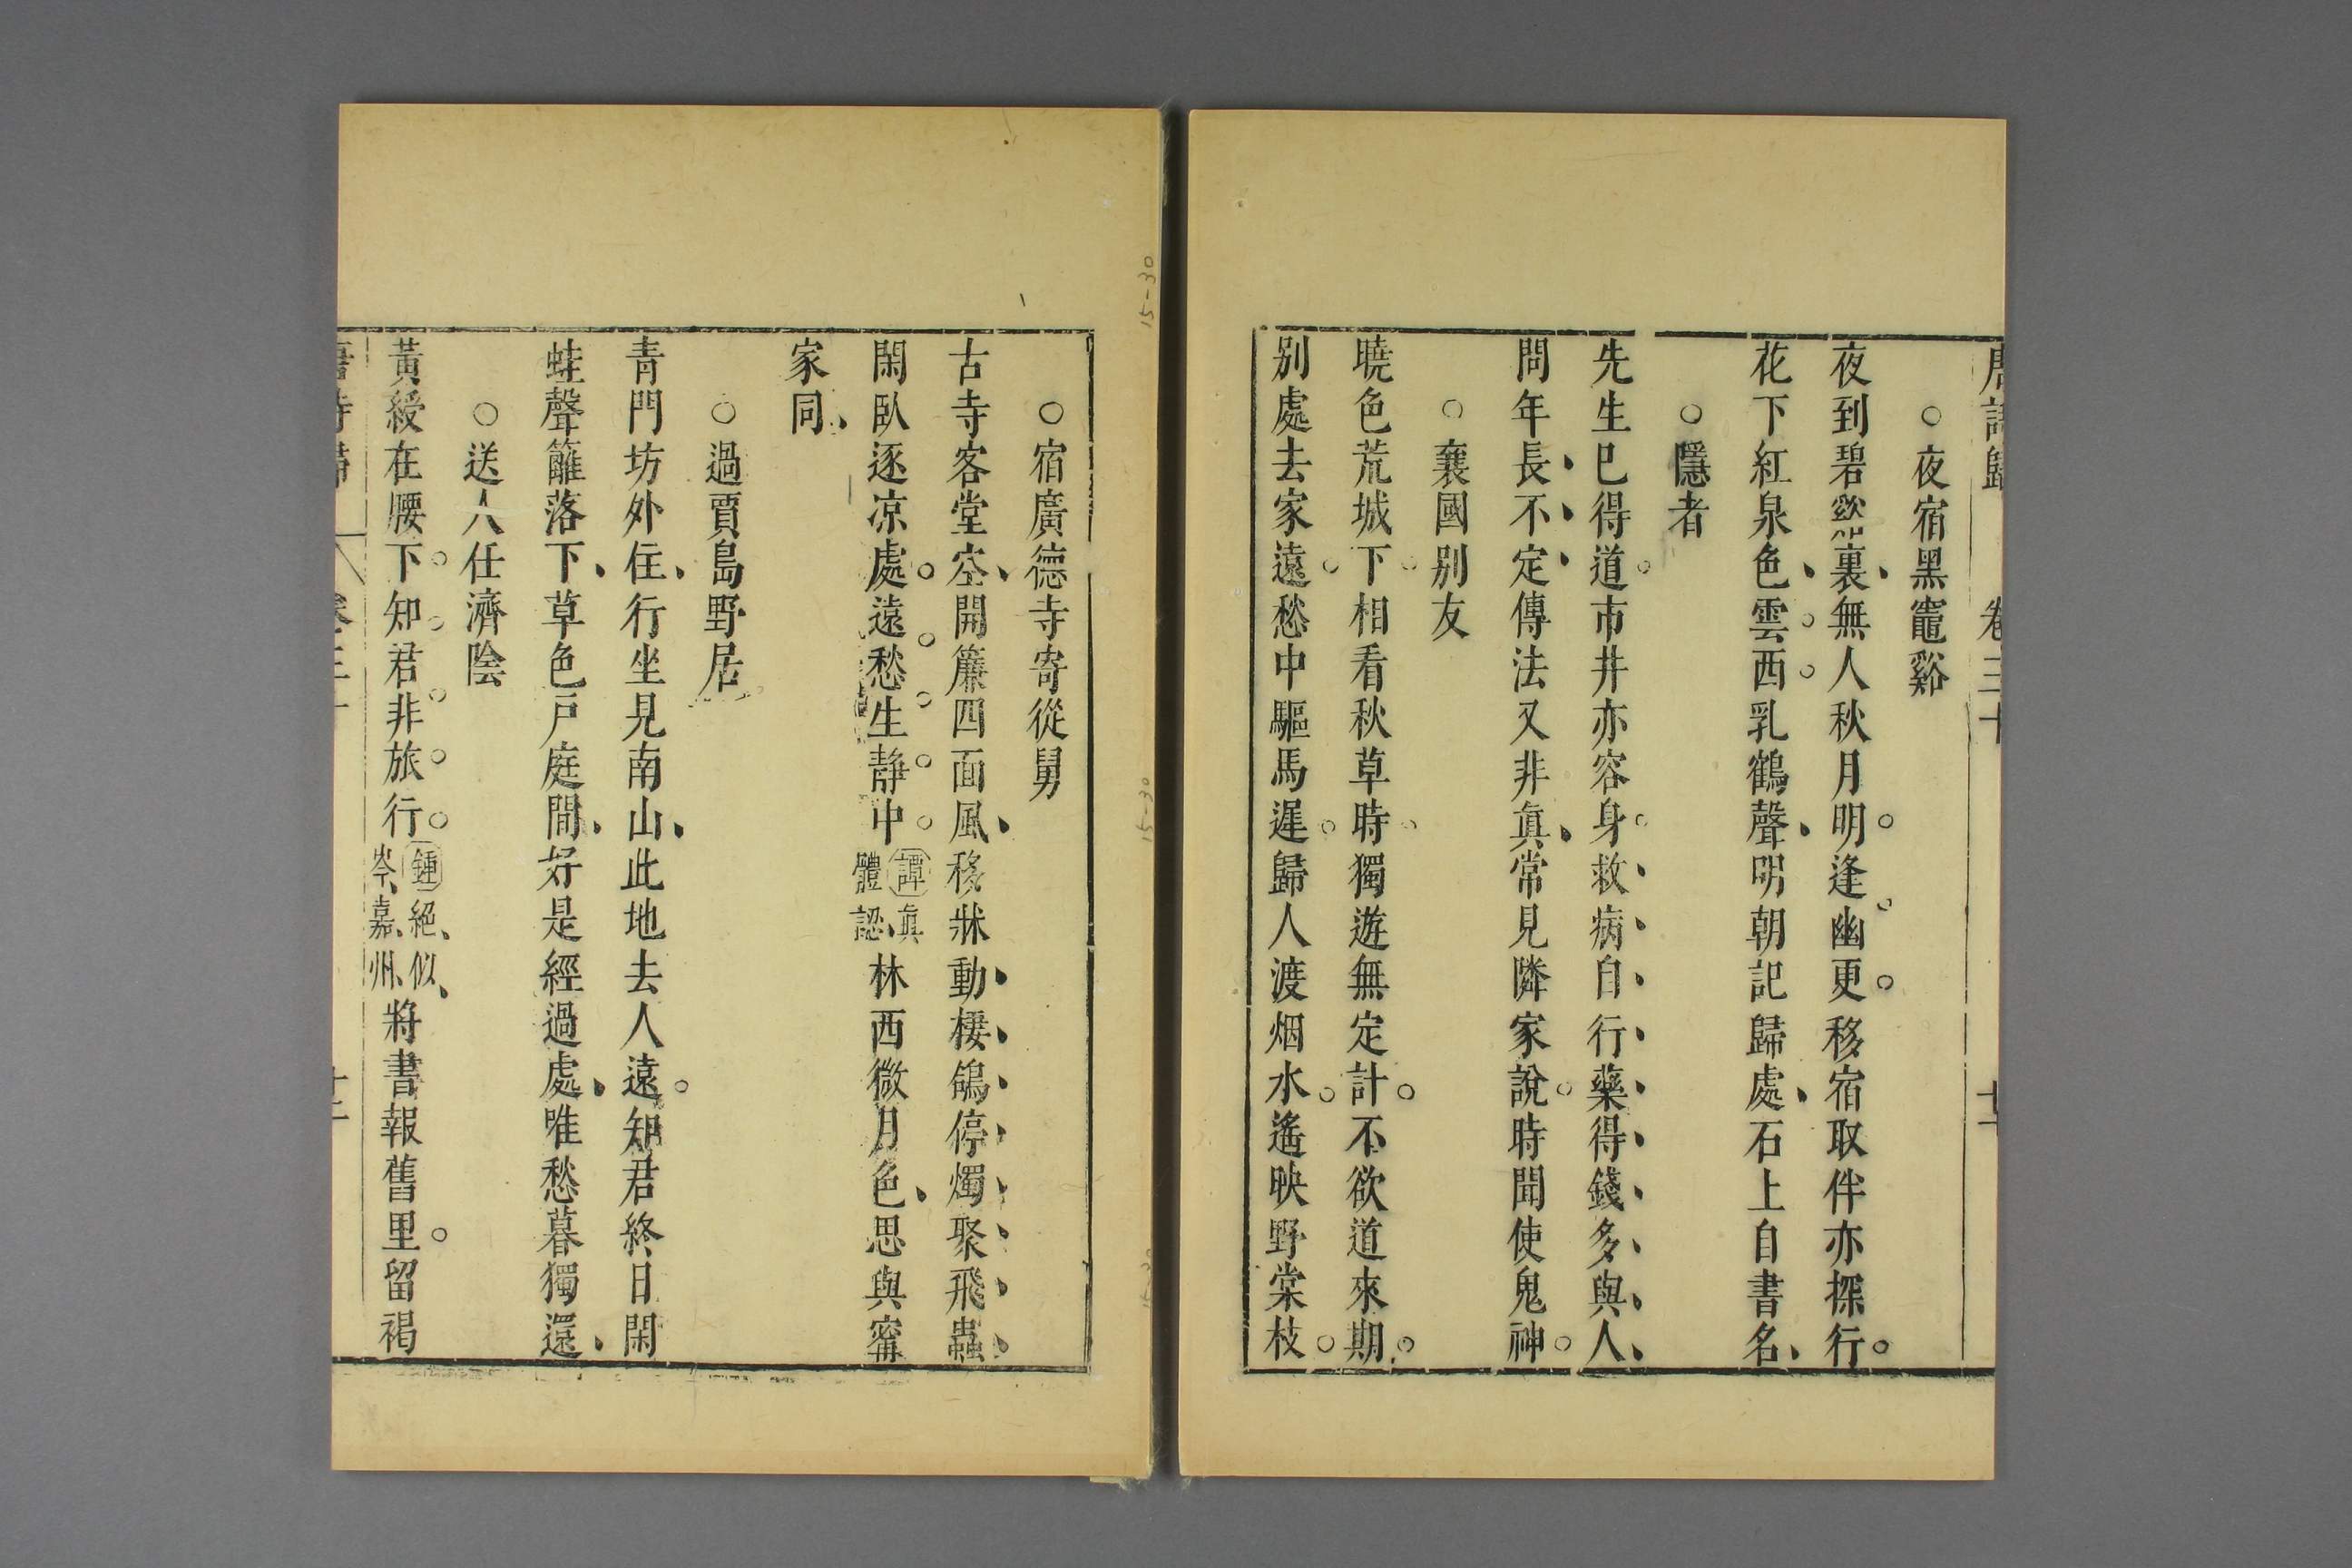 唐詩歸 卷三十 十二
○夜宿黑竈谿
夜到碧谿裏無人秋月明逢幽更移宿取伴亦探行
花下紅泉色雲西乳鶴聲明朝記歸處石上自書名
○隱者
先生已得道市井亦容身救病自行藥得錢多與人
問年長不定傳法又非眞常見隣家說時聞使鬼神
○襄國别友
曉色荒城下相看秋草時獨遊無定計不欲道來期
别處去家遠愁中驅馬遲歸人渡烟水遙映野棠枝
○宿廣德寺寄從舅
古寺客堂空開簾四面風移牀動棲鴿停燭聚飛蟲
閑臥逐凉處遠愁生靜中譚眞體認林西微月色思與甯
家同
○過賈島野居
青門坊外住行坐見南山此地去人遠知君終日閑
蛙聲籬落下草色戸庭間好是經過處唯愁暮獨還
○送人仕濟陰
黃綬在腰下知君非旅行鍾絕似岑嘉州將書報舊里留褐
唐詩歸 卷三十 十二
15-30
15-30